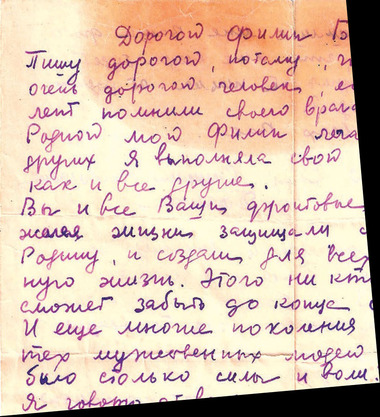 Дорогой Филип
Пишу дорогой, потому,
очень дорогой человек,
лет помнили своего врача
Родной мой Филип
других я выполняла свой
как и все другие.
Вы и все Ваши фронтовые
жалея жизни защищали
Родину, и создали для всех
ную жизнь. Этого ни кт
сможет забыть до конца
И еще многие поколения
тех мужественных людей
было столько силы и воли.
Я